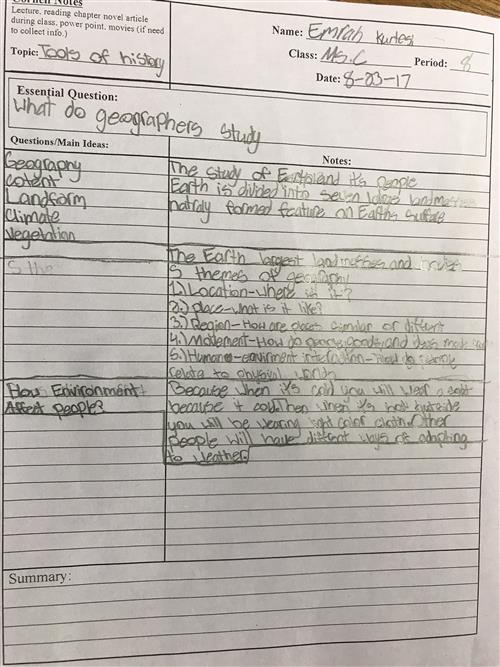 Cornell Notes
Lecture, reading chapter novel article
during class, power point, movies (if need
to collect info.)
Topic: Tools of history
Name: Emrah
Class: Ms. C Period: 8
Date: 8-23-17
Essential Question:
What do geographers study
Questions/Main Ideas:
Notes:
Geography
Landform
Climate
Vegetation
The study of Earth and it's people
Earth is divided into seven large landmasses
natraly formed feature on Earths surface
The Earth largest landmasses and
5 themes of geography
1.) Location-where is it?
2.) place-what is it like?
3.) Region-How are places similar or diffrent
4.) Movement-How do people, goods, and ideas move
5.) Human-
relate to physical world
How Environment
Affect people?
Because when it's cold you will wear a coat
because it cold. Then when it's hot outside
you will be wearing light color cloth. Other
people will have diffrent ways of adapting
to weather.
Summary: